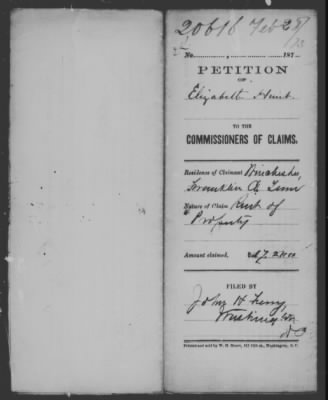 20616 Feb 28/73
No. , 187
PETITION
OF
Elizabeth Hunt.
TO THE
COMMISSIONERS OF CLAIMS.
Residence of Claimant Winchester,
Franklin Co Tenn
Nature of Claim Rent of
Property
Amount claimed,
FILED BY
John H
D C
Printed and sold by W. H. Moore, 511 11th st., Washington, D. C.